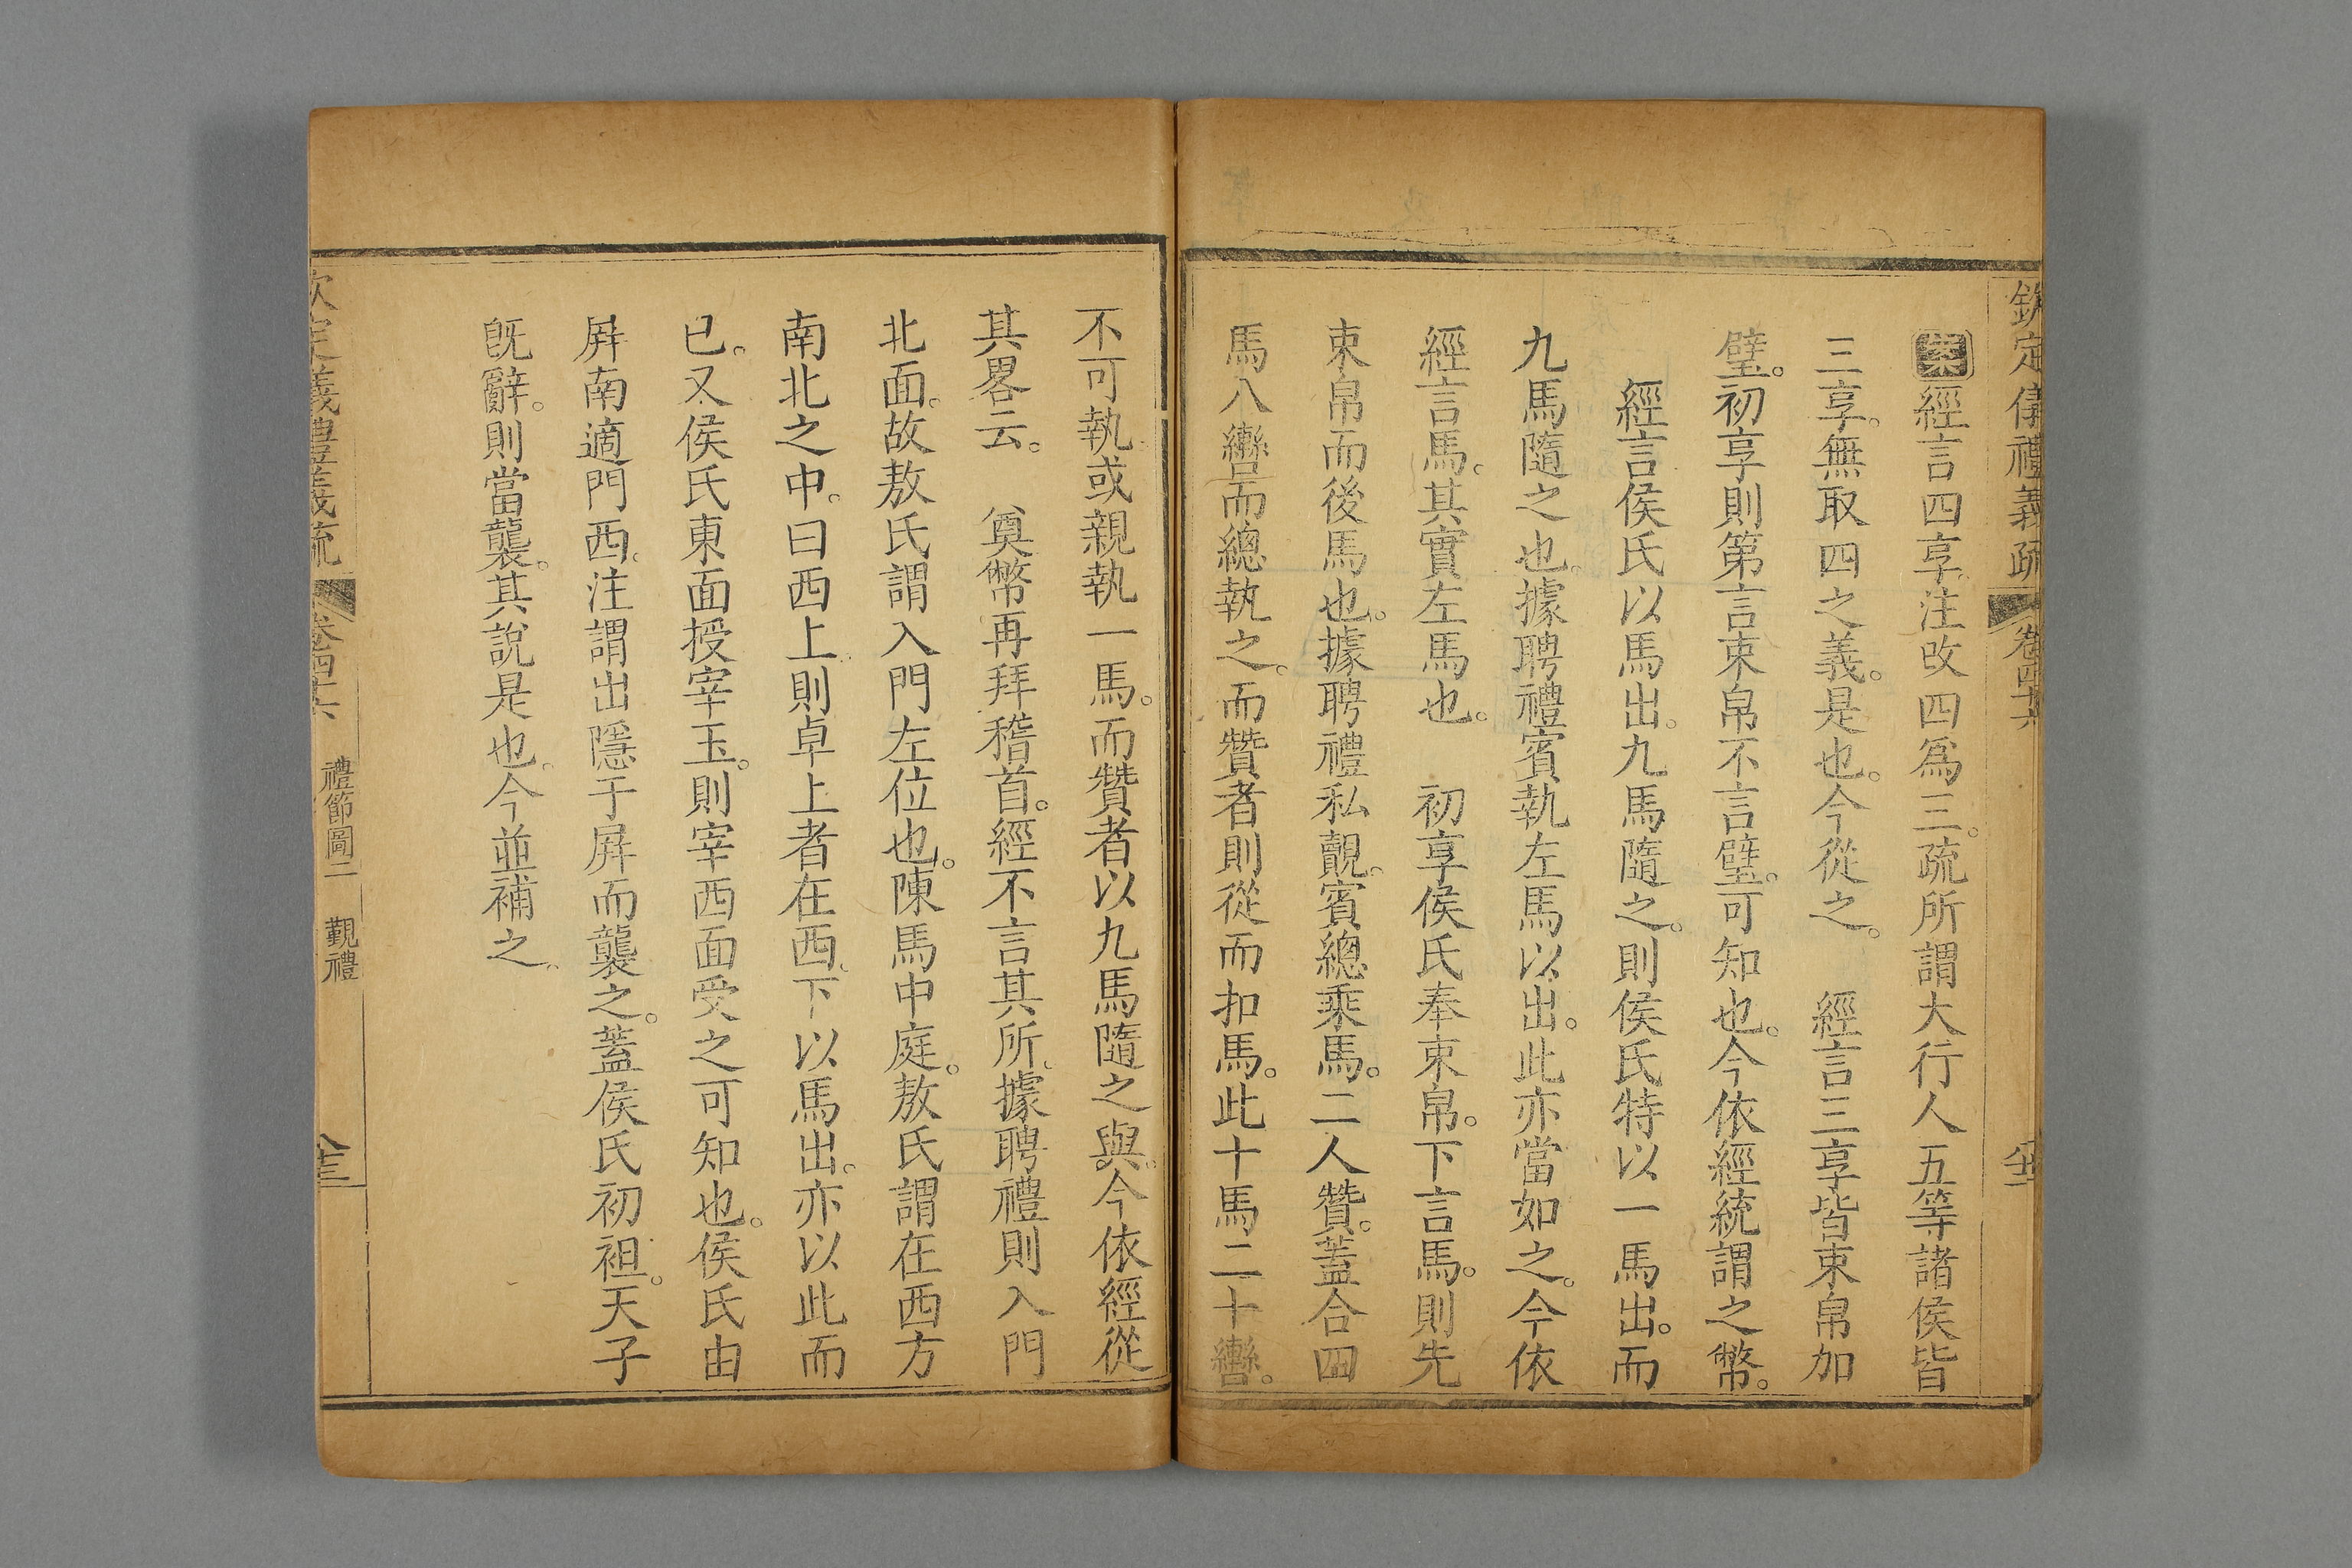 欽定儀禮義疏 卷四十六
案經言四享。注改四爲三。疏所謂大行人五等諸侯皆
三享。無取四之義。是也。今從之。 經言三享皆束帛加
璧。初享則第言束帛不言璧。可知也。今依經統謂之幣。
經言侯氏以馬出。九馬隨之。則侯氏特以一馬出。而
九馬隨之也。據聘禮賓執左馬以出。此亦當如之。今依
經言馬。其實左馬也。 初享侯氏奉束帛。下言馬。則先
束帛而後馬也。據聘禮私覿。賓總乘馬。二人贊。蓋合四
馬八轡而總執之。而贊者則從而扣馬。此十馬二十轡。
不可執或親執一馬。而贊者以九馬隨之與。今依經從
其畧云。 奠幣再拜稽首。經不言其所。據聘禮則入門
北面。故敖氏謂入門左位也。陳馬中庭。敖氏謂在西方
南北之中。曰西上則卓上者在西。下以馬出。亦以此而
已。又侯氏東面授宰玉。則宰西面受之可知也。侯氏由
屏南適門西。注謂出隱于屏而襲之。蓋侯氏初袒。天子
旣辭。則當襲。其說是也。今並補之。
欽定義禮義疏 卷四十六 禮節圖二 覲禮